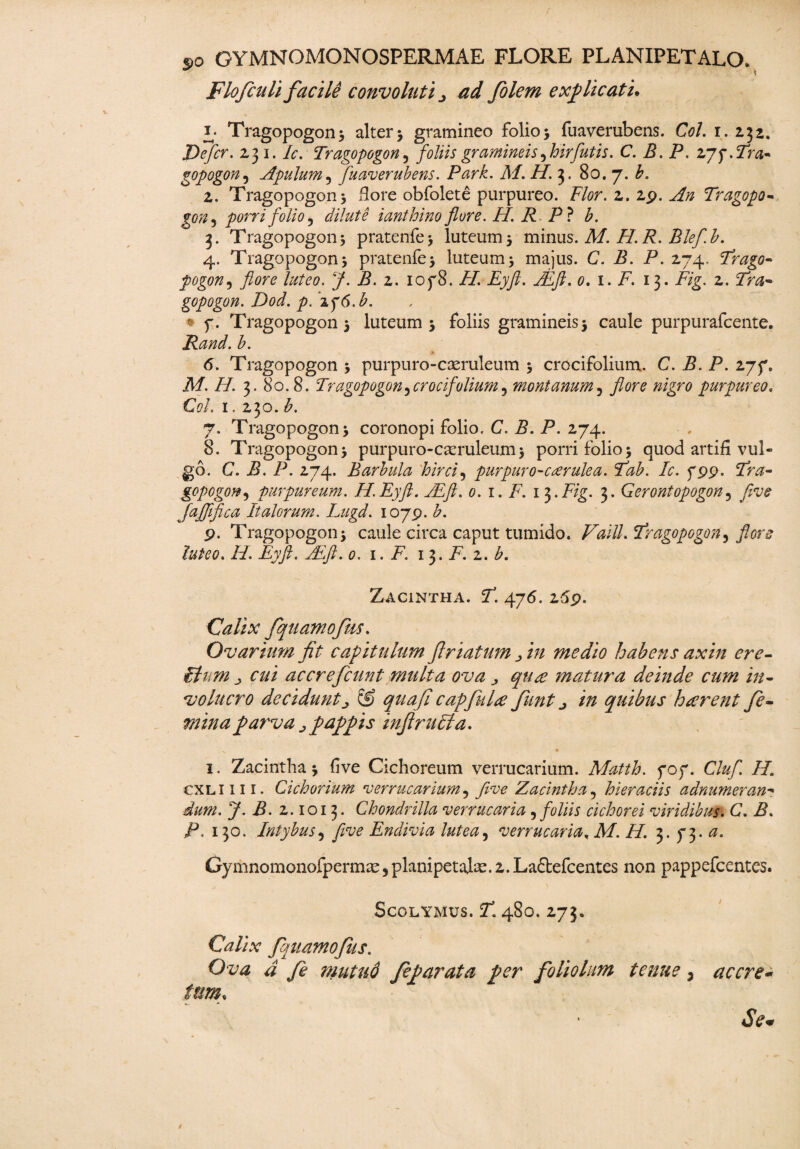 90 GYMNOMONOSPERMAE FLORE PLANIPETALO.
Floſculi facilè convoluti, ad ſolem explicati.
1. Tragopogon; alter; gramineo folio; ſuaverubens. Col. 1. 232.
Deſcr. 231. Ic. Tragopogon, foliis gramineis, hirſutis. C. B. P. 275. Tra-
gopogon, Apulum, ſuaverubens. Park. M. H. 3. 80. 7. b.
2. Tragopogon; flore obſoletê purpureo. Flor. 2. 29. An Tragopo-
gon, porri folio, dilutê ianthino flore. H. R. P? b.
3. Tragopogon; pratenſe; luteum; minus. M. H. R. Bleſ. b.
4. Tragopogon; pratenſe; luteum; majus. C. B. P. 274. Trago-
pogon, flore luteo. J. B. 2. 1058. H. Eyſt. Æſt. o. 1. F. 13. Fig. 2. Tra-
gopogon. Dod. p. 256. b.
5. Tragopogon; luteum; foliis gramineis; caule purpuraſcente.
Rand. b.
6. Tragopogon; purpuro-cæruleum; crocifolium. C. B. P. 275.
M. H. 3. 80. 8. Tragopogon, crocifolium, montanum, flore nigro purpureo.
Col. 1. 230. b.
7. Tragopogon; coronopi folio. C. B. P. 274.
8. Tragopogon; purpuro-cæruleum; porri folio; quod artifi vul-
gô. C. B. P. 274. Barbula hirci, purpuro-cærulea. Tab. Ic. 599. Tra-
gopogon, purpureum. H. Eyſt. Æſt. o. 1. F. 13. Fig. 3. Gerontopogon, ſive
ſaſſifica Italorum. Lugd. 1079. b.
9. Tragopogon; caule circa caput tumido. Vaill. Tragopogon, flore
luteo. H. Eyſt. Æſt. o. 1. F. 13. F. 2. b.
ZACINTHA. T. 476. 269.
Calix ſquamoſus.
Ovarium fit capitulum ſtriatum, in medio habens axin ere-
ctum, cui accreſcunt multa ova, quæ matura deinde cum in-
volucro decidunt, & quaſi capſulæ ſunt, in quibus hærent ſe-
mina parva, pappis inſtructa.
1. Zacintha; ſive Cichoreum verrucarium. Matth. 505. Cluſ. H.
CXLIIII. Cichorium verrucarium, ſive Zacintha, hieraciis adnumeran-
dum. J. B. 2. 1013. Chondrilla verrucaria, foliis cichorei viridibus. C. B.
P. 130. Intybus, ſive Endivia lutea, verrucaria, M. H. 3. 53. a.
Gymnomonoſpermæ, planipetalæ. 2. Lacteſcentes non pappeſcentes.
SCOLYMUS. T. 480. 273.
Calix ſquamoſus.
Ova â ſe mutuô ſeparata per foliolum tenue, accre-
tum.
Se-